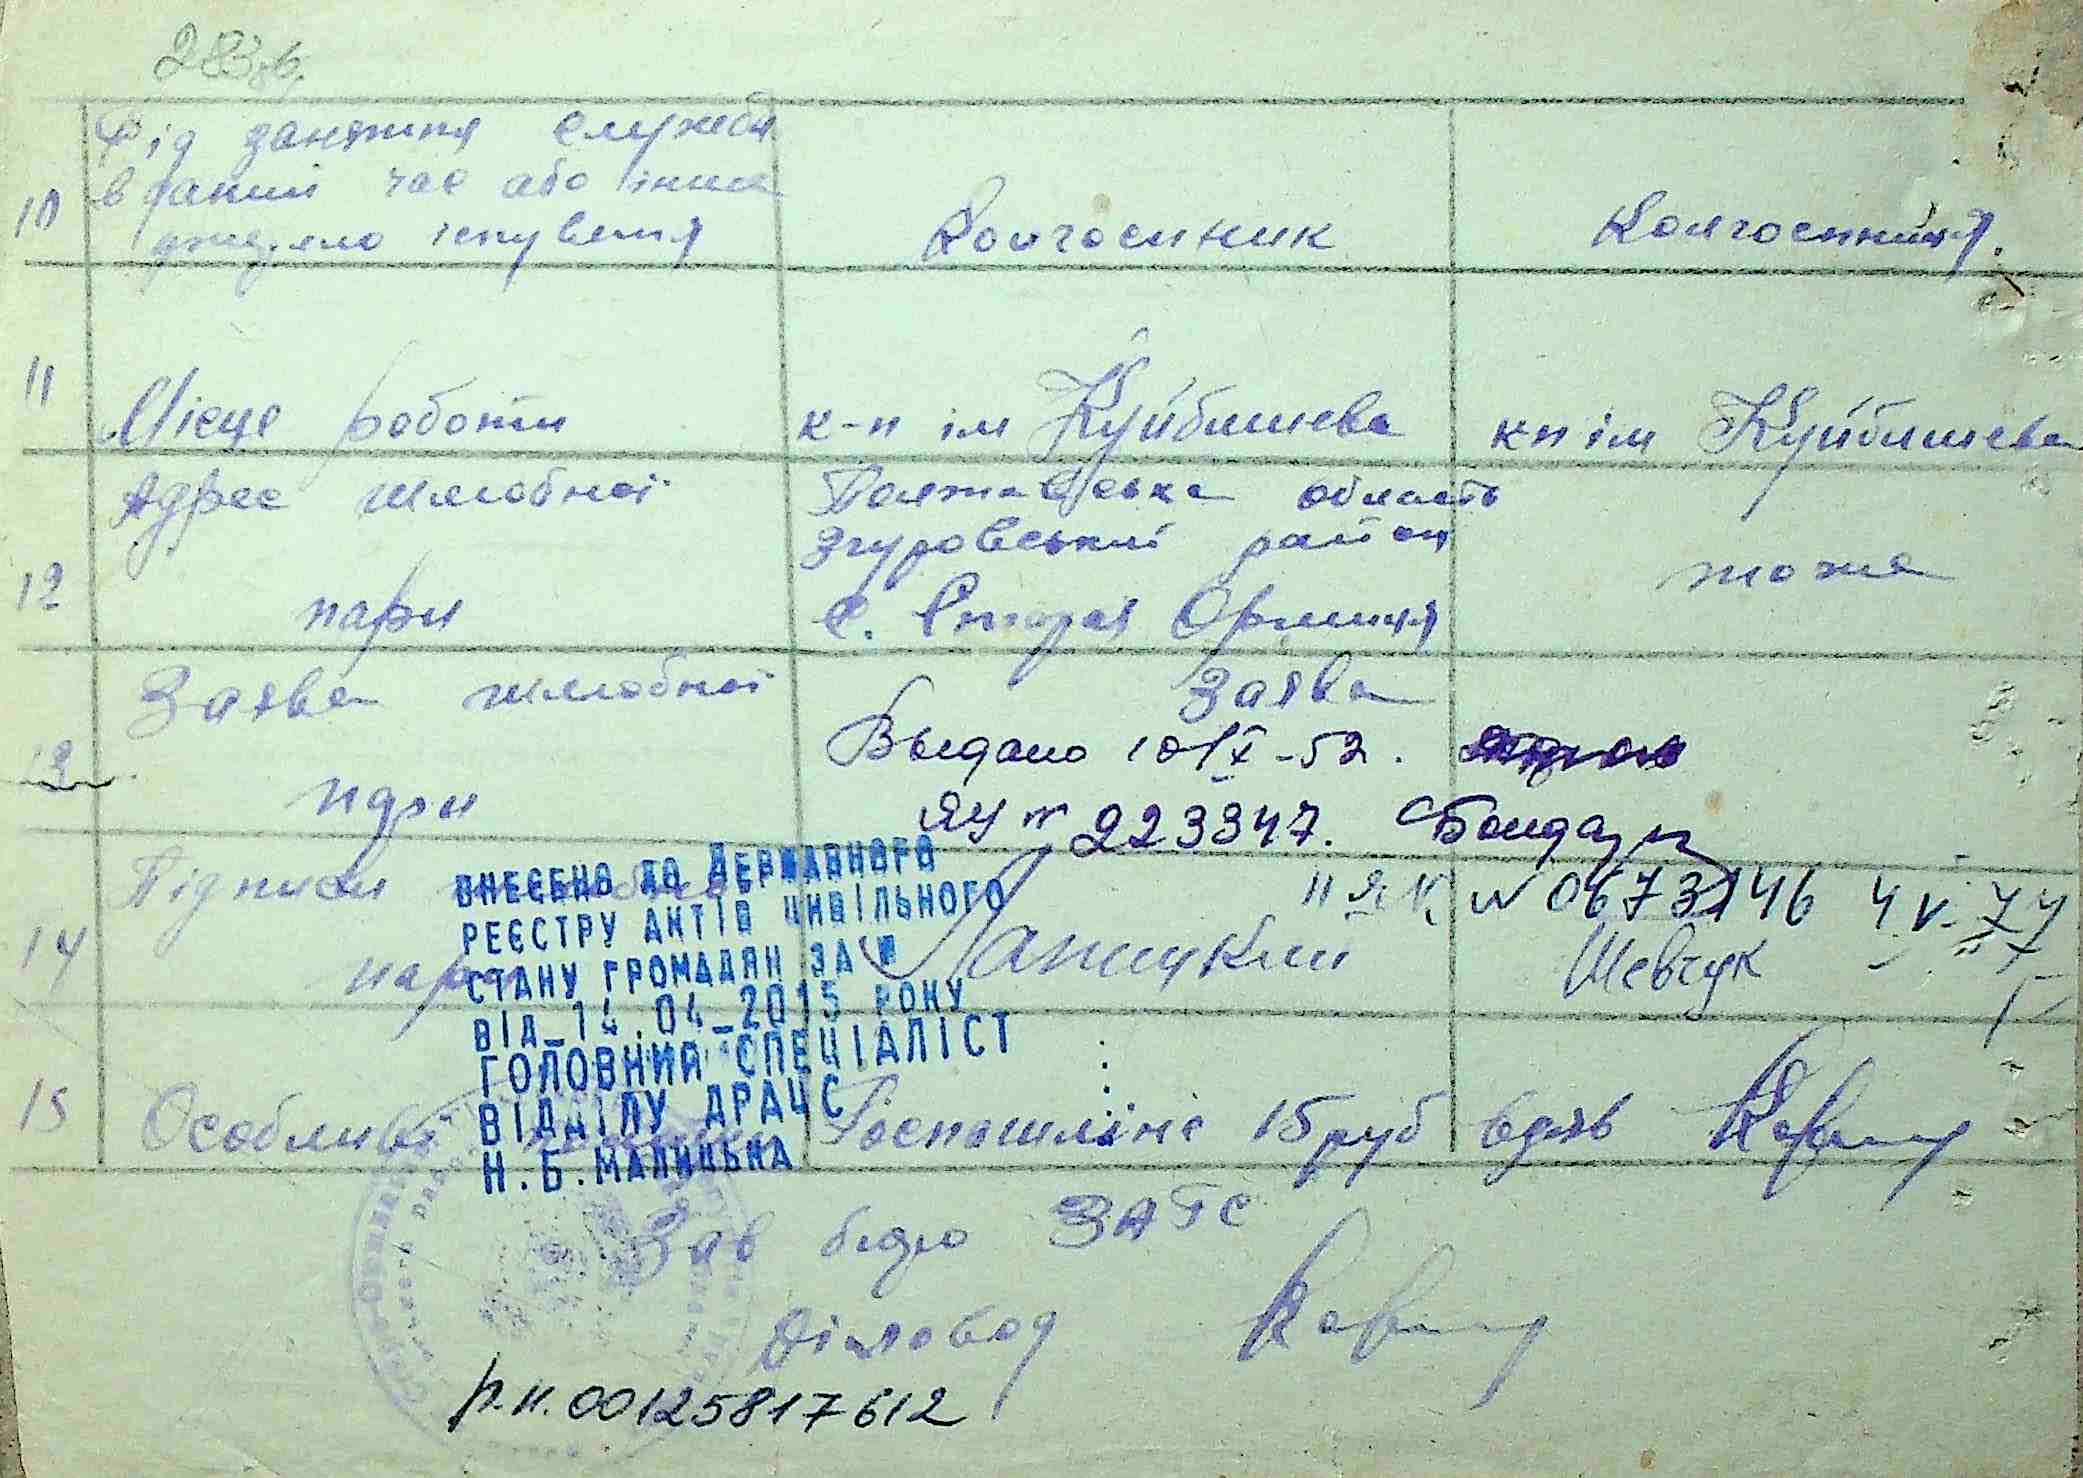 283 зв.
Рід заняття служби
в даний час або інше
10 джерело існування Колгоспник Колгоспниця.
11 Місце роботи к-п ім Куйбишева кп ім Куйбишева
Адрес шлюбної Полтавська область
Згуровський район
12 пари с. Стара Оржиця тоже
Заява шлюбної Заява
Выдано 10/IX-52.
13 пари ЯУ № 223347. Бондар
Підписи шлюбної II ЯК № 0673146 4 V-77
14 пари Шевчук
15 Особливі Госпошліна 15 руб вдяв
Зав бюро ЗАГС
Діловод
р.н. 00125817612
ВНЕСЕНО ДО ДЕРЖАВНОГО
РЕЄСТРУ АКТІВ ЦИВІЛЬНОГО
СТАНУ ГРОМАДЯН ЗА №
ВІД_14.04_2015 РОКУ
ГОЛОВНИЙ СПЕЦІАЛІСТ
ВІДДІЛУ ДРАЦС
Н.Б.МАЛИЦЬКА